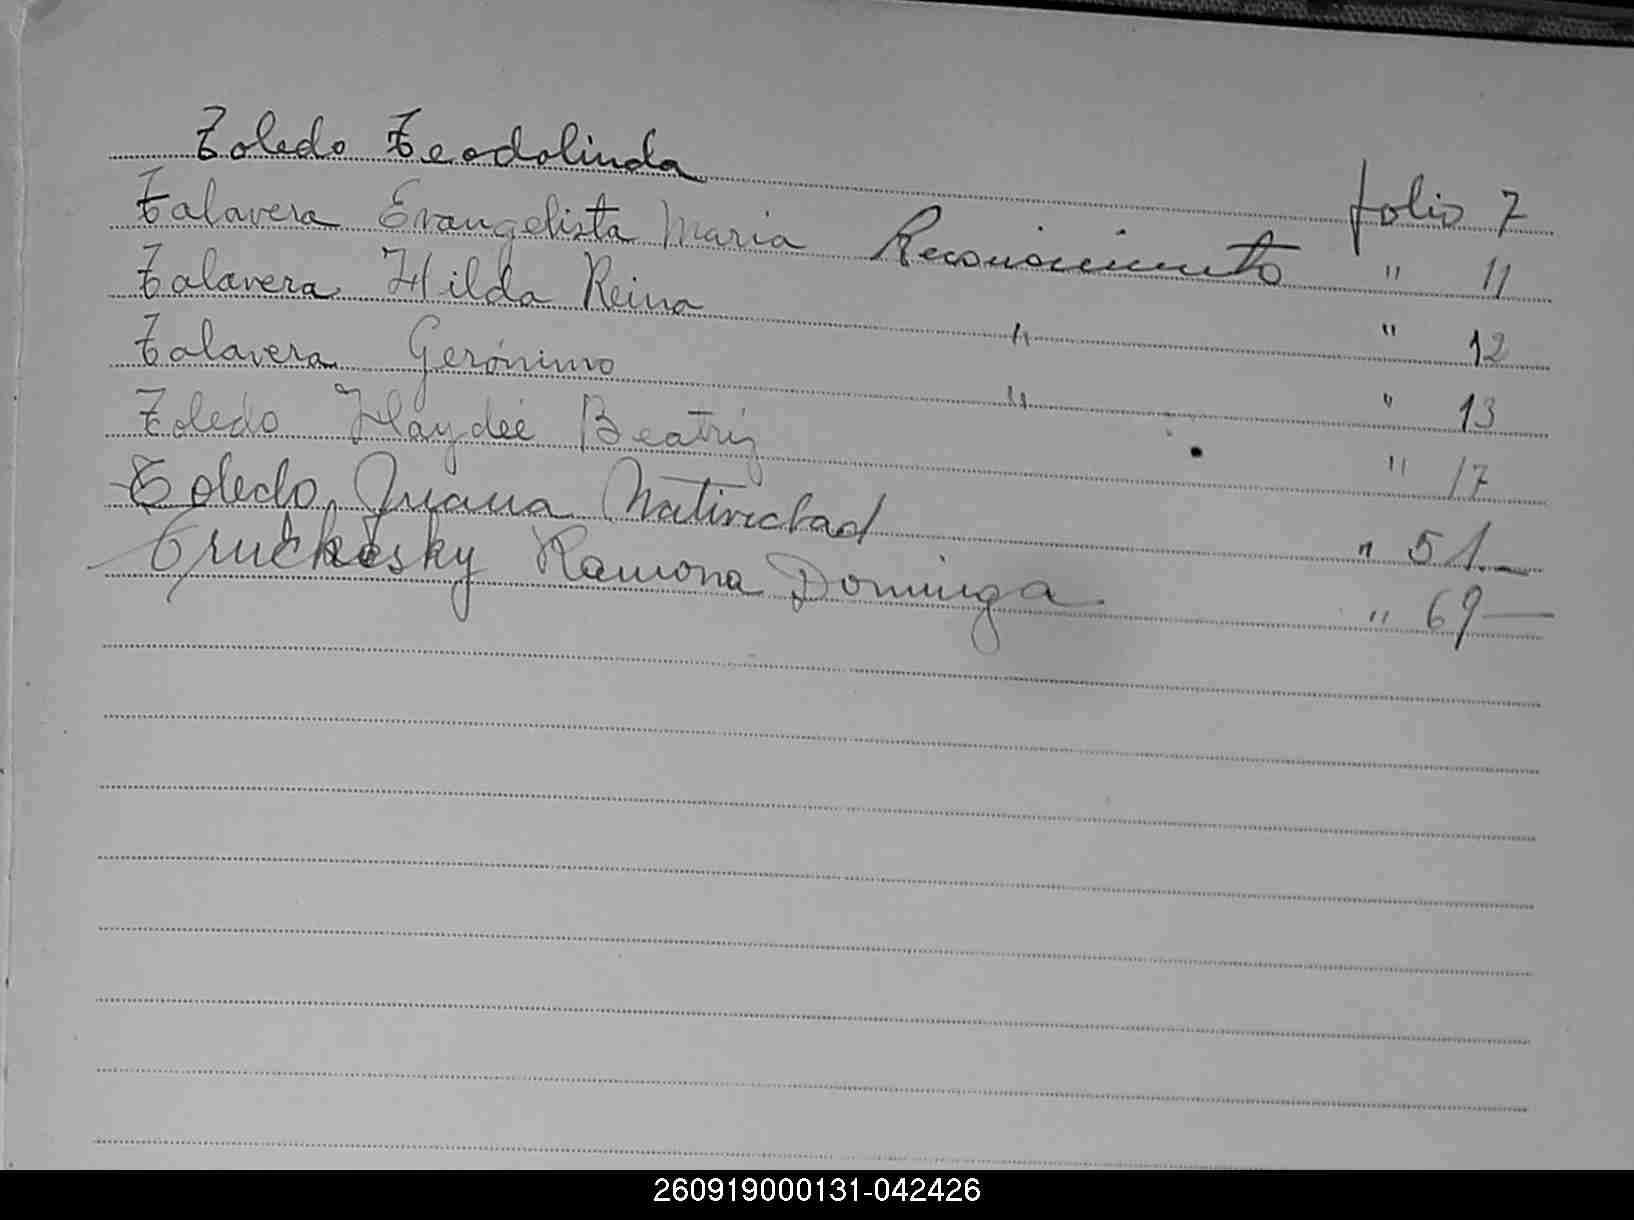 Toledo Teodolinda folio 7
Talavera Evangelista Maria Reconocimiento " 11
Talavera Hilda Reina " " 12
Talavera Gerónimo " " 13
Toledo Haydée Beatriz " 17
Toledo, Juana Natividad " 51.—
Truchesky Ramona Dominga " 69—
260919000131-042426